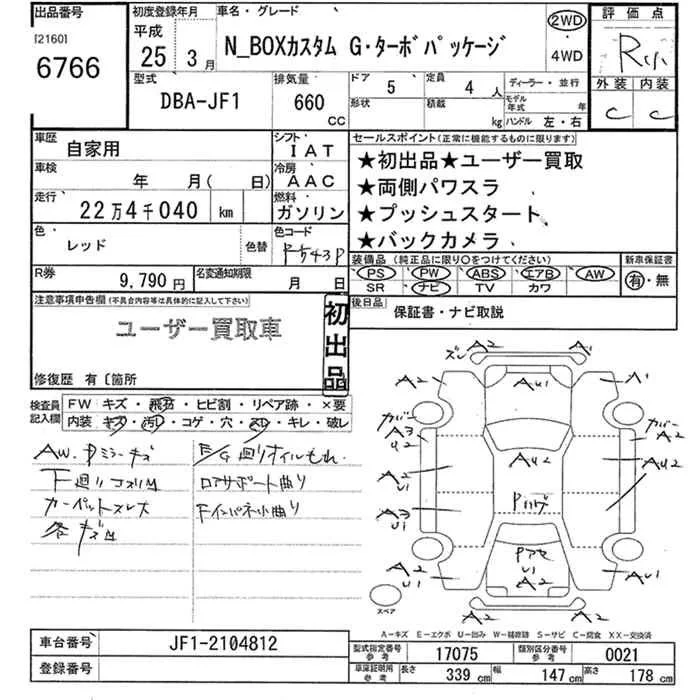 出品番号
[2160]
6766
初度登録年月
平成
25年 3月
車名・グレード
N_BOXカスタム G・ターボパッケージ
2WD
4WD
評価点
R
外装 内装
C C
型式
DBA-JF1
排気量
660 CC
ドア 5
定員 4人
形状
積載 kg
ディーラー・並行
モデル年式 年
ハンドル 左・右
車歴 自家用
シフト IAT
車検 年 月( 日)
冷房 AAC
走行 22万4千040 km
燃料 ガソリン
色 レッド
色替
色コード
R券 9,790円
名変通知期限 月 日
セールスポイント(正常に機能するものに限ります)
★初出品★ユーザー買取
★両側パワスラ
★プッシュスタート
★バックカメラ
装備品 (純正品に限り○をつけてください)
PS PW ABS エアB AW
SR ナビ TV カワ
新車保証書
有・無
後日品
保証書・ナビ取説
注意事項申告欄(不具合内容等は具体的に記入して下さい)
ユーザー買取車
初出品
修復歴 有〔箇所
検査員記入欄
FW キズ・飛石・ヒビ割・リペア跡・×要
内装 キズ・汚れ・コゲ・穴・スレ・キレ・破レ
AW.Pミラーキズ
下廻りコスリ凹
カーペットスレ大
各キズ凹
E/G廻りオイルもれ.
ロアサポート曲り
Fインパネ小曲り
ズレ A2 A1
A2 AU1 A1
カバー A3 U2
カバー A2
AU2
AU2
A2 U1
Pハゲ
A3 U1
Pアセ U1 A2
A2 U1
AU1
スペア
A-キズ E-エクボ U-凹み W-補修跡 S-サビ C-腐食 XX-交換済
車台番号 JF1-2104812
登録番号
型式指定番号 参考 17075
類別区分番号 参考 0021
車庫証明用 参考 長さ 339cm 幅 147cm 高さ 178cm